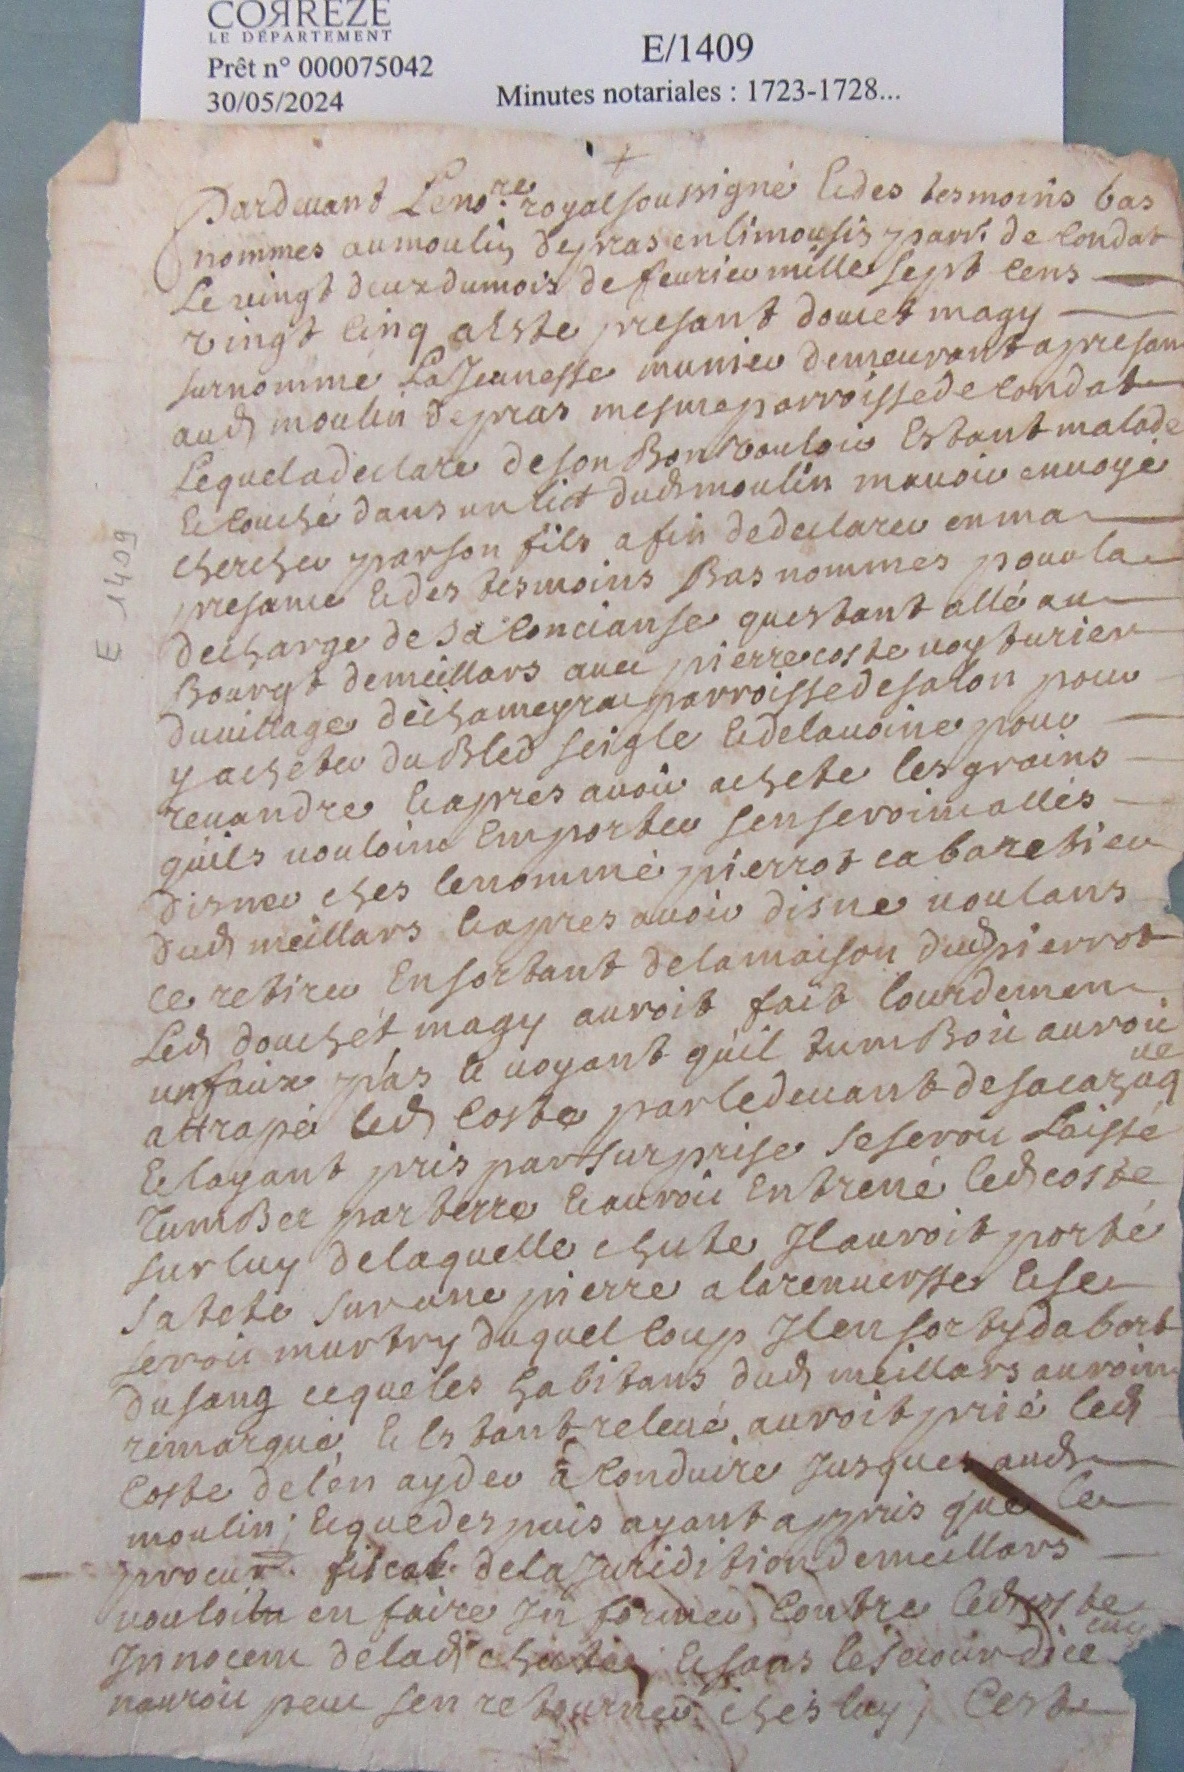 CORRÈZE
LE DÉPARTEMENT
Prêt n° 000075042
30/05/2024
E/1409
Minutes notariales : 1723-1728...
E 1409
+
Pardeuant Le no.re royal soussigné & des tesmoins bas
nommes au moulin de pras en limousin parr. de Condat
Le vingt deux du mois de feurier mille sept cens
vingt cinq a este presant doucet magy
surnommé La Jeunesse munier demeurant a presan
aud moulin de pras mesme parroisse de Condat
Lequel a declare de son Bon vouloir Estant malade
& couché dans un lict dud moulin mauoir enuoyé
chercher par son fils afin de declarer en ma
presance & des tesmoins Bas nommes pour la
decharge de sa Conciance questant allé au
Bourgt de meillars auec pierre coste voyturier
du uillage de chameyrac parroisse de salon pour
y acheter du Bled seigle & de lauoine pour
reuandre & apres auoir achete les grains
quils vouloint Emporter senseroint allés
disner ches le nommé pierrot cabaretier
dud meillars & apres auoir disne voulans
ce retirer En sortant de la maison dud pierrot
Led douchet magy auroit fait lourdemen
un faux pas & voyant quil tumBoit auroit
attrapé led Coste par le deuant de sa cazaq
ue
& layant pris par surprise se seroit Laissé
TumBer par terre & auroit Entrené led coste
sur luy de laquelle chute Il auroit porté
sa tete sur une pierre a la renuersse & se
seroit murtry duquel Coup Il en sorty dabort
du sang ce que les habitans dud meillars auroint
remarqué & Estant releué auroit prié led
Coste de len ayder a Conduire Jusques aud
moulin; & que despuis ayant appris que le
procur. fiscal de la Juridition de meillars
vouloit en faire In former Contre led coste
Innocent de lad chute; & sans le secour dice
luy
nauroit peu sen retourner ches luy; Ceste